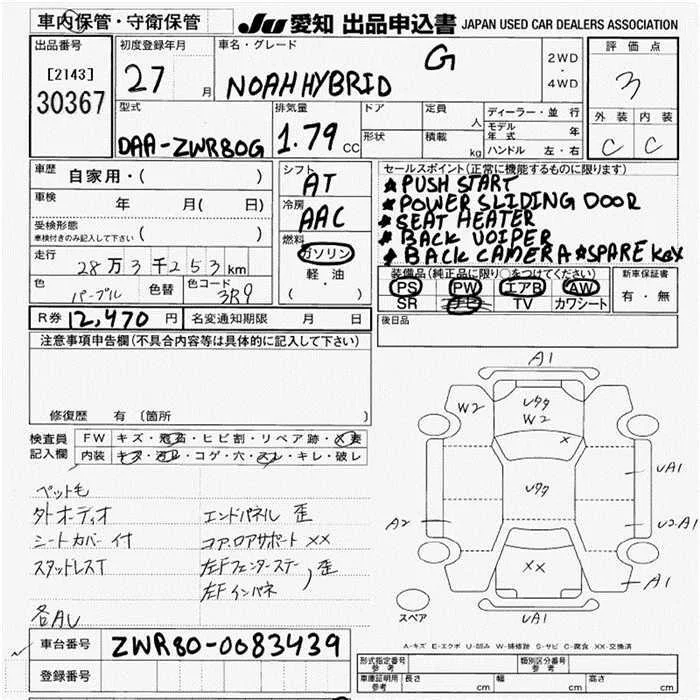 車内保管・守衛保管
Ju 愛知 出品申込書 JAPAN USED CAR DEALERS ASSOCIATION
出品番号
[2143]
30367
初度登録年月
27 月
車名・グレード
NOAH HYBRID G
2WD
・
4WD
評価点
3
外装 内装
C C
型式
DAA-ZWR80G
排気量
1.79 CC
ドア
形状
定員 人
積載 kg
ディーラー・並行
モデル年式 年
ハンドル 左・右
車歴 自家用・( )
車検 年 月( 日)
受検形態
車検付きのみ記入して下さい ( )
走行
28万3千253km
色 パープル 色替 色コード 3R9
シフト
AT
冷房
AAC
燃料
ガソリン
軽・油
( )
セールスポイント(正常に機能するものに限ります)
★PUSH START
★POWER SLIDING DOOR
★SEAT HEATER
★BACK VOIPER
★BACK CAMERA ★SPARE KEY
装備品(純正品に限り○をつけてください)
PS PW エアB AW
SR TV カワシート
新車保証書
有・無
R券 12,470 円 名変通知期限 月 日
後日品
注意事項申告欄(不具合内容等は具体的に記入して下さい)
修復歴 有 〔箇所 〕
検査員
記入欄
FW キズ・飛石・ヒビ割・リペア跡・X要
内装 キズ・汚れ・コゲ・穴・スレ・キレ・破レ
ペット毛
外オーディオ
シートカバー付
スタッドレスT
各AU
エンドパネル 歪
コア、ロアサポート XX
左Fフェンダーステー、歪
左Fインパネ
A1
W2
Uタタ
W2
X
Uタタ
UA1
A2
U2.A1
XX
A1
スペア
UA1
A-キズ E-エクボ U-凹み W-補修跡 S-サビ C-腐食 XX-交換済
車台番号 ZWR80-0083439
登録番号
形式指定番号
参考
類別区分番号
参考
車庫証明用
参考
長さ cm 幅 cm 高さ cm